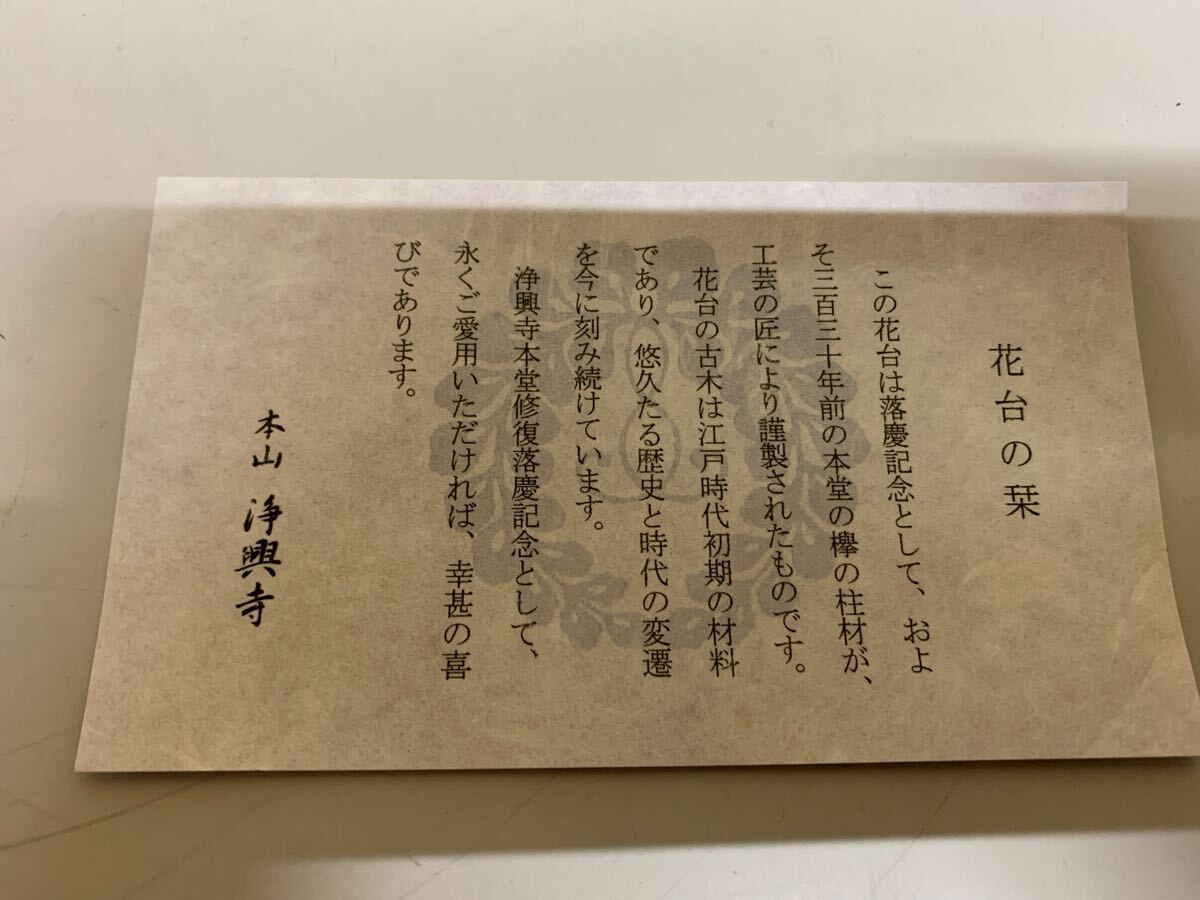 花台の栞
この花台は落慶記念として、およ
そ三百三十年前の本堂の欅の柱材が、
工芸の匠により謹製されたものです。
花台の古木は江戸時代初期の材料
であり、悠久たる歴史と時代の変遷
を今に刻み続けています。
浄興寺本堂修復落慶記念として、
永くご愛用いただければ、幸甚の喜
びであります。
本山 浄興寺